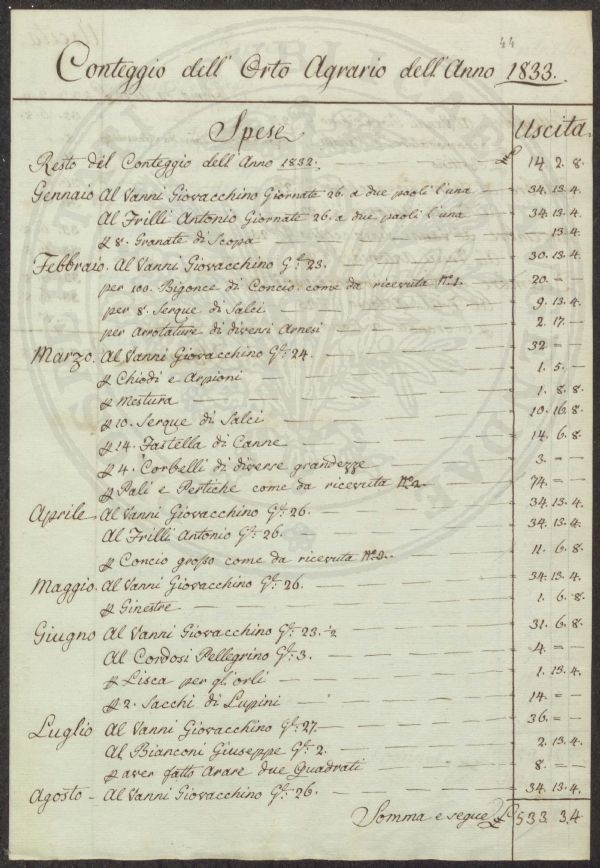 44
Conteggio dell' Orto Agrario dell'Anno 1833.
Spese Uscita
Resto del Conteggio dell Anno 1832. 14. 2. 8.
Gennaio Al Vanni Giovacchino Giornate 26. a due paoli l'una 34. 13. 4.
Al Frilli Antonio Giornate 26. a due paoli l'una 34. 13. 4.
p 8. Granate di Scopa 13. 4.
Febbraio. Al Vanni Giovacchino Gte 23. 30. 13. 4.
per 100. Bigonce di Concio come da ricevuta No. 1. 20. —
per 8. Serque di Salci 9. 13. 4.
per Arrotature di diversi Arnesi 2. 17. —
Marzo. Al Vanni Giovacchino Gte 24. 32 = —
p Chiodi e Arpioni 1. 5. —
p Mestura 1. 8. 8.
p 10. Serque di Salci 10. 16. 8.
p 14. Fastella di Canne 14. 6. 8.
p 4. Corbelli di diverse grandezze 3. = —
p Pali e Pertiche come da ricevuta No. 2. 74. = —
Aprile Al Vanni Giovacchino Gte 26. 34. 13. 4.
Al Frilli Antonio Gte 26. 34. 13. 4.
p Concio grosso come da ricevuta No. 3. 11. 6. 8.
Maggio. Al Vanni Giovacchino Gte 26. 34. 13. 4.
p Ginestre 1. 6. 8.
Giugno Al Vanni Giovacchino Gte 23. ½ 31. 6. 8.
Al Cordosi Pellegrino Gte 3. 4. = —
p Lisca per gl'orli 1. 13. 4.
p 2. Sacchi di Lupini 14. = —
Luglio Al Vanni Giovacchino Gte 27. 36. = —
Al Bianconi Giuseppe Gte 2. 2. 13. 4.
p aver fatto Arare due Quadrati 8. = —
Agosto - Al Vanni Giovacchino Gte 26. 34. 13. 4.
Somma e segue 533 3.4